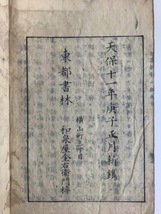 天保十一年庚子正月新鐫
東都書林
横山町三丁目
和泉屋金右衛門梓